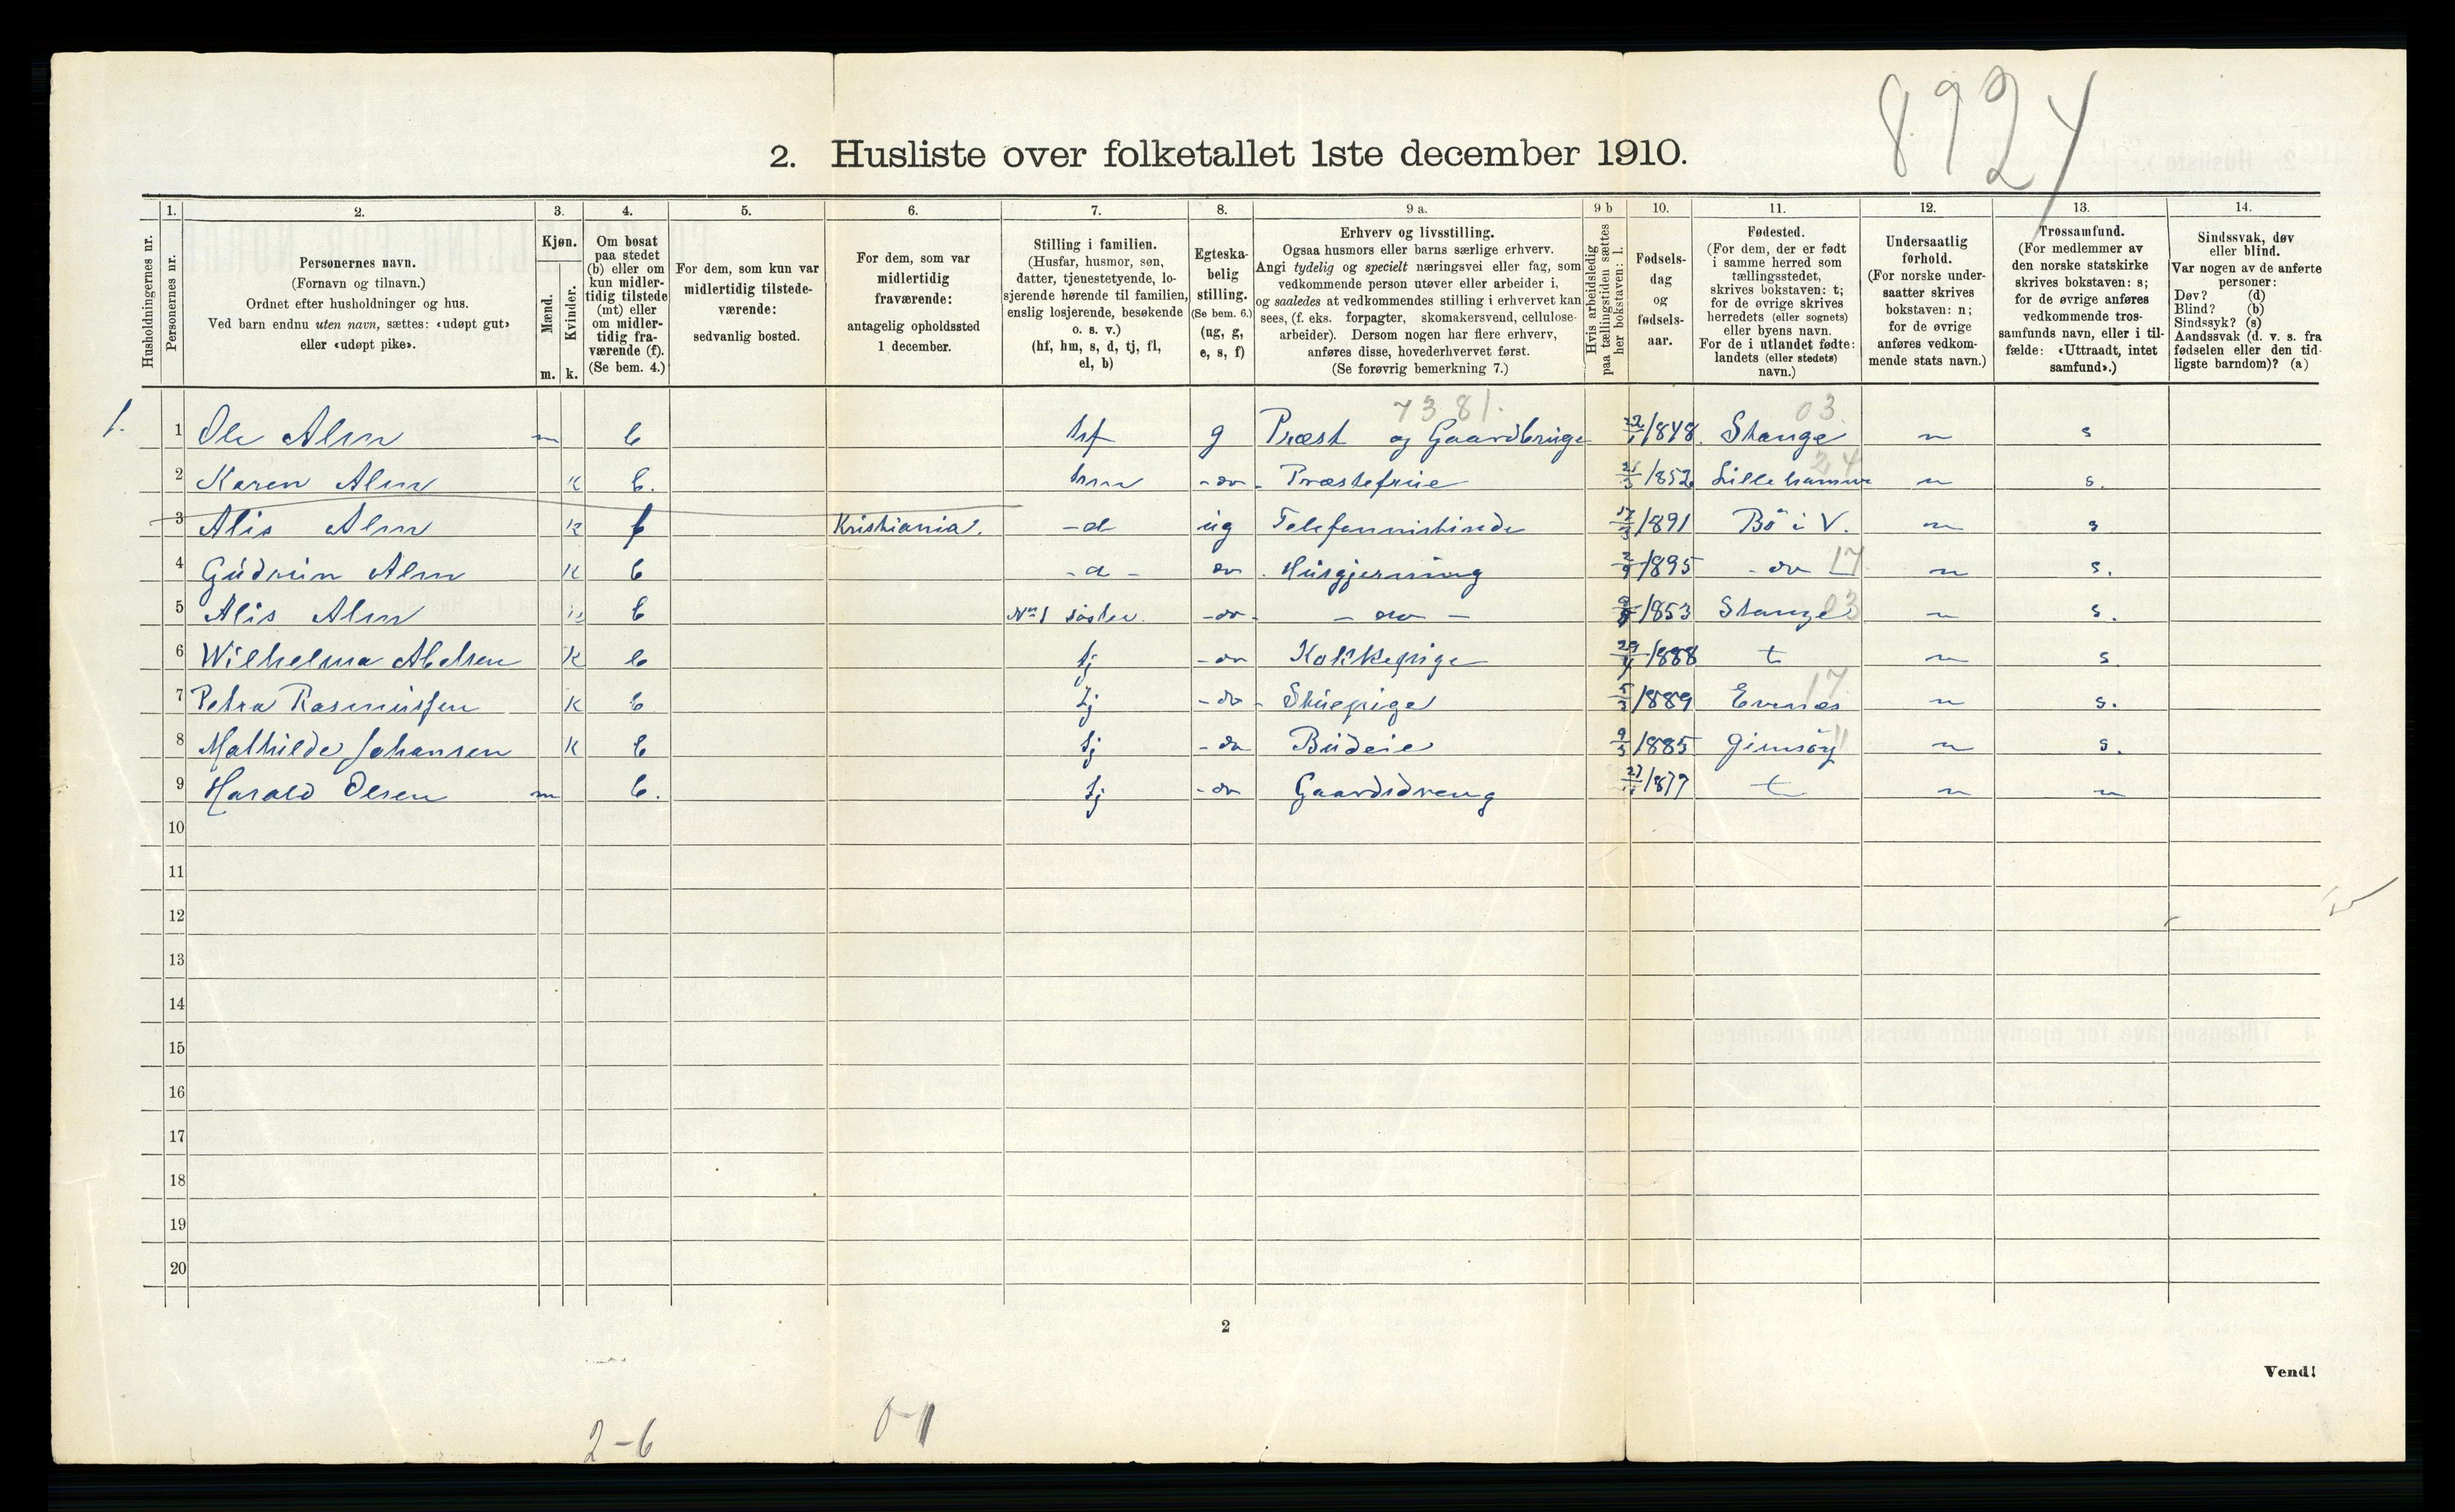 8924
2. Husliste over folketallet 1ste december 1910.
Husholdningernes nr.
1. Personernes nr.
2. Personernes navn. (Fornavn og tilnavn.) Ordnet efter husholdninger og hus. Ved barn endnu uten navn, sættes: «udøpt gut» eller «udøpt pike».
3. Kjøn. Mænd. m. Kvinder. k.
4. Om bosat paa stedet (b) eller om kun midlertidig tilstede (mt) eller om midlertidig fraværende (f). (Se bem. 4.)
5. For dem, som kun var midlertidig tilstedeværende: sedvanlig bosted.
6. For dem, som var midlertidig fraværende: antagelig opholdssted 1 december.
7. Stilling i familien. (Husfar, husmor, søn, datter, tjenestetyende, losjerende hørende til familien, enslig losjerende, besøkende o. s. v.) (hf, hm, s, d, tj, fl, el, b)
8. Egteskabelig stilling. (Se bem. 6.) (ug, g, e, s, f)
9 a. Erhverv og livsstilling. Ogsaa husmors eller barns særlige erhverv. Angi tydelig og specielt næringsvei eller fag, som vedkommende person utøver eller arbeider i, og saaledes at vedkommendes stilling i erhvervet kan sees, (f. eks. forpagter, skomakersvend, cellulosearbeider). Dersom nogen har flere erhverv, anføres disse, hovederhvervet først. (Se forøvrig bemerkning 7.)
9 b Hvis arbeidsledig paa tællingstiden sættes her bokstaven: l.
10. Fødselsdag og fødselsaar.
11. Fødested. (For dem, der er født i samme herred som tællingsstedet, skrives bokstaven: t; for de øvrige skrives herredets (eller sognets) eller byens navn. For de i utlandet fødte: landets (eller stedets) navn.)
12. Undersaatlig forhold. (For norske undersaatter skrives bokstaven: n; for de øvrige anføres vedkommende stats navn.)
13. Trossamfund. (For medlemmer av den norske statskirke skrives bokstaven: s; for de øvrige anføres vedkommende trossamfunds navn, eller i tilfælde: «Uttraadt, intet samfund».)
14. Sindssvak, døv eller blind. Var nogen av de anførte personer: Døv? (d) Blind? (b) Sindssyk? (s) Aandssvak (d. v. s. fra fødselen eller den tidligste barndom)? (a)
7381. 03.
1. 1 Ole Alm m b hf g Præst og Gaardbruge /1848. Stange n s
24
2 Karen Alm K b. hm - do - Præstefrue /1852 Lillehammer n s.
3 Alis Alm K f Kristiania. - d ug Telefonnistinde 17/3 1891 Bö i V. n s
4 Gudrun Alm K b - d - do Husgjerning 2/9 1895 - do 17 n s.
5 Alis Alm K b No 1 söster - do - - do - /1853 Stange 03 n s.
6 Wilhelma Abelsen K b tj - do Kokkepige /1888 t n s.
7 Petra Rasmussen K b tj - do - Stuepige 5/3 1889 Evenæs 17 n s.
8 Mathilde Johansen K b tj - do Budeie /1885 Gimsöy 11 n s.
9 Harald Olsen m b. tj - do Gaardsdreng /1877 t n n
10
11
12
13
14
15
16
17
18
19
20
2
Vend!
2-6 0-1